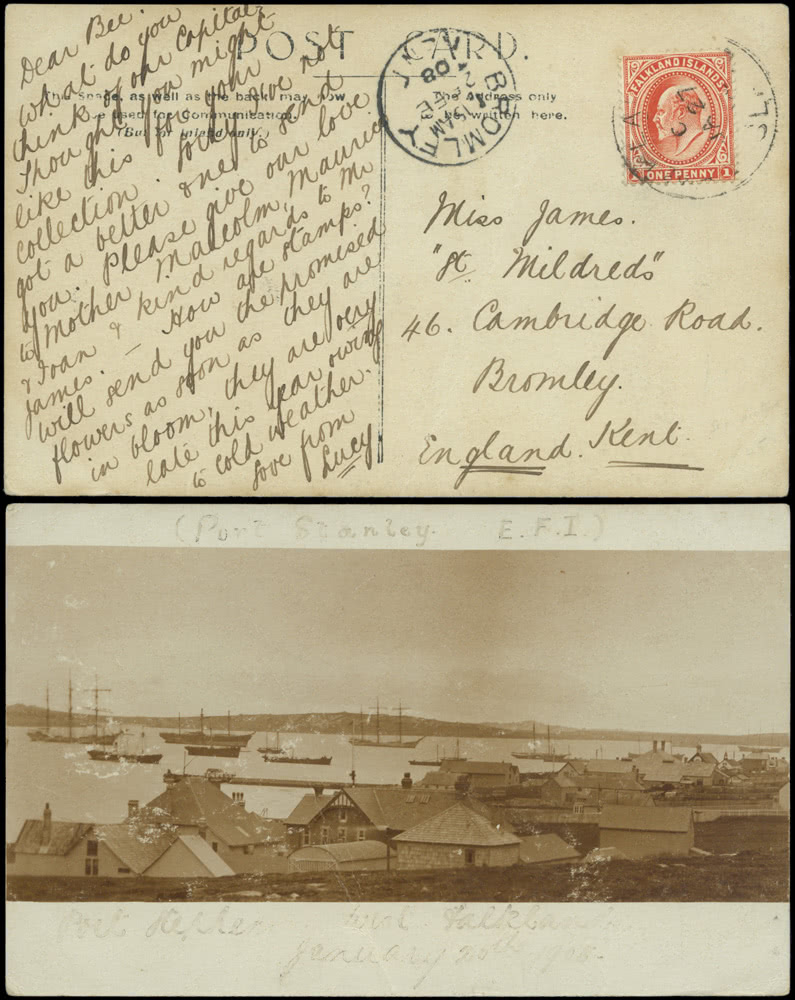 POST CARD.
This space, as well as the back, may now
be used for Communication.
But for Inland only.
The Address only
to be written here.
Dear Bee.
what do you
think of our Capital
Thought you might
like this for your
collection. Have not
got a better one to send
you. Please give our love
to Mother, Malcolm, Maurice
& Joan & kind regards to Mr
James. – How are stamps?
will send you the promised
flowers as soon as they are
in bloom, they are very
late this year owing
to cold weather.
Love from
Lucy
BROMLEY
KENT
FEB
08
FALKLAND ISLANDS
ONE PENNY 1
Miss James.
"St. Mildreds"
46. Cambridge Road.
Bromley.
England. Kent.
(Port Stanley. E.F.I.)
Port Stephens West Falkland
January 20th 1908.